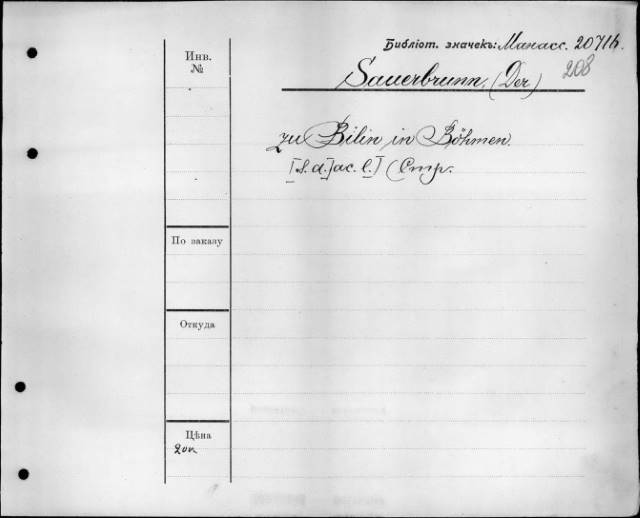 Библіот. значекъ: Манасс. 20716.
208
Инв. №
Sauerbrunn, (Der)
zu Bilin in Böhmen.
[S. d.] ac. l.] (Стр.
По заказу
Откуда
Цѣна